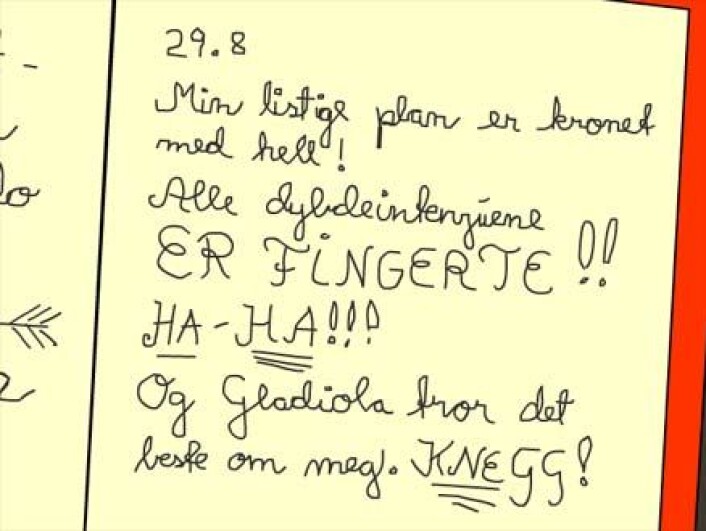 29.8
Min listige plan er kronet
med hell!
Alle dybdeintervjuene
ER FINGERTE!!
HA-HA!!!
Og Gladiola tror det
beste om meg. KNEGG!